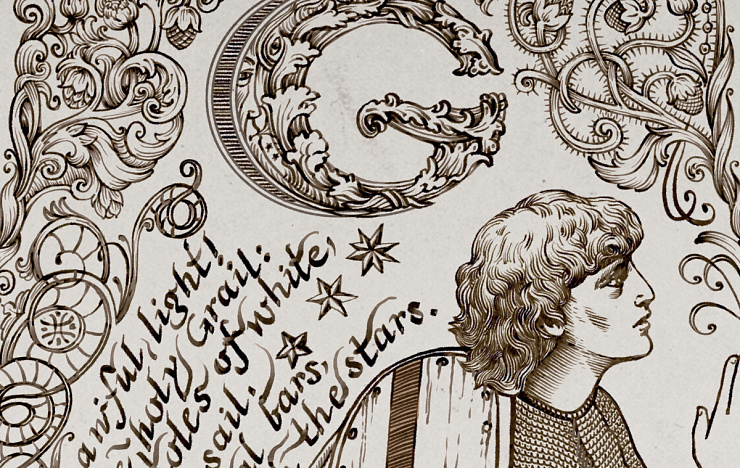 G
awful light!
holy Grail:
oles of white,
sail.
al bars,
the stars.